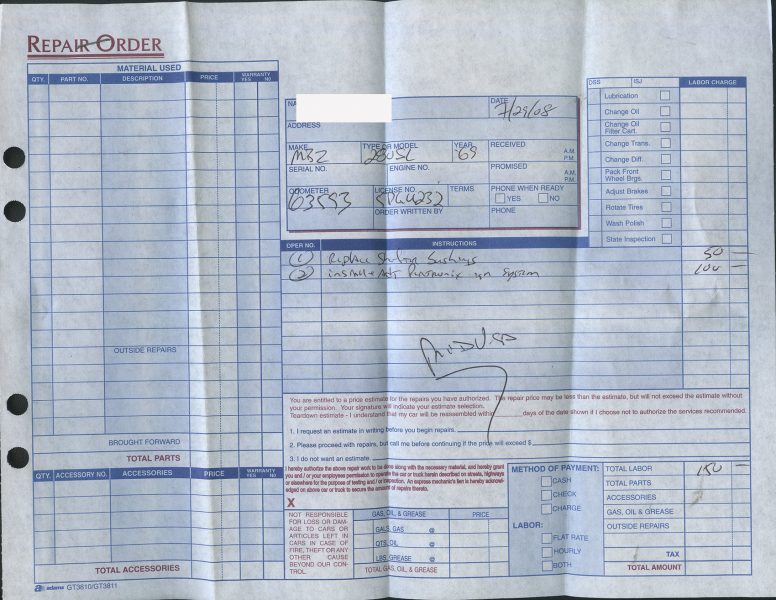 REPAIR ORDER
MATERIAL USED
QTY. PART NO. DESCRIPTION PRICE WARRANTY YES NO
OUTSIDE REPAIRS
BROUGHT FORWARD
TOTAL PARTS
QTY. ACCESSORY NO. ACCESSORIES PRICE WARRANTY YES NO
TOTAL ACCESSORIES
adams GT3810/GT3811
NA
DATE 7/29/08
ADDRESS
MAKE MBZ TYPE OR MODEL 280SL YEAR '69 RECEIVED A.M. P.M.
SERIAL NO. ENGINE NO. PROMISED A.M. P.M.
ODOMETER 63593 LICENSE NO. TERMS PHONE WHEN READY YES NO
ORDER WRITTEN BY PHONE
DSS ISJ LABOR CHARGE
Lubrication
Change Oil
Change Oil Filter Cart.
Change Trans.
Change Diff.
Pack Front Wheel Brgs.
Adjust Brakes
Rotate Tires
Wash Polish
State Inspection
OPER NO. INSTRUCTIONS
(1) Replace Bushings 50 —
(2) Install Pertronix ign System 100 —
You are entitled to a price estimate for the repairs you have authorized. The repair price may be less than the estimate, but will not exceed the estimate without
your permission. Your signature will indicate your estimate selection.
Teardown estimate - I understand that my car will be reassembled within days of the date shown if I choose not to authorize the services recommended.
1. I request an estimate in writing before you begin repairs.
2. Please proceed with repairs, but call me before continuing if the price will exceed $
3. I do not want an estimate.
I hereby authorize the above repair work to be done along with the necessary material, and hereby grant
you and / or your employees permission to operate the car or truck herein described on streets, highways
or elsewhere for the purpose of testing and / or inspection. An express mechanic's lien is hereby acknowl-
edged on above car or truck to secure the amount of repairs thereto.
X
NOT RESPONSIBLE
FOR LOSS OR DAM-
AGE TO CARS OR
ARTICLES LEFT IN
CARS IN CASE OF
FIRE, THEFT OR ANY
OTHER CAUSE
BEYOND OUR CON-
TROL.
GAS, OIL, & GREASE PRICE
GALS. GAS @
QTS. OIL @
LBS. GREASE @
TOTAL GAS, OIL, & GREASE
METHOD OF PAYMENT:
CASH
CHECK
CHARGE
LABOR:
FLAT RATE
HOURLY
BOTH
TOTAL LABOR 150 —
TOTAL PARTS
ACCESSORIES
GAS, OIL & GREASE
OUTSIDE REPAIRS
TAX
TOTAL AMOUNT